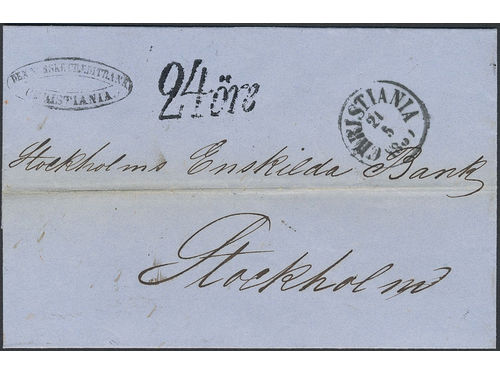 DEN NORSKE CREDITBANK
CHRISTIANIA
24 öre
CHRISTIANIA
21
5
Stockholms Enskilda Bank
Stockholm